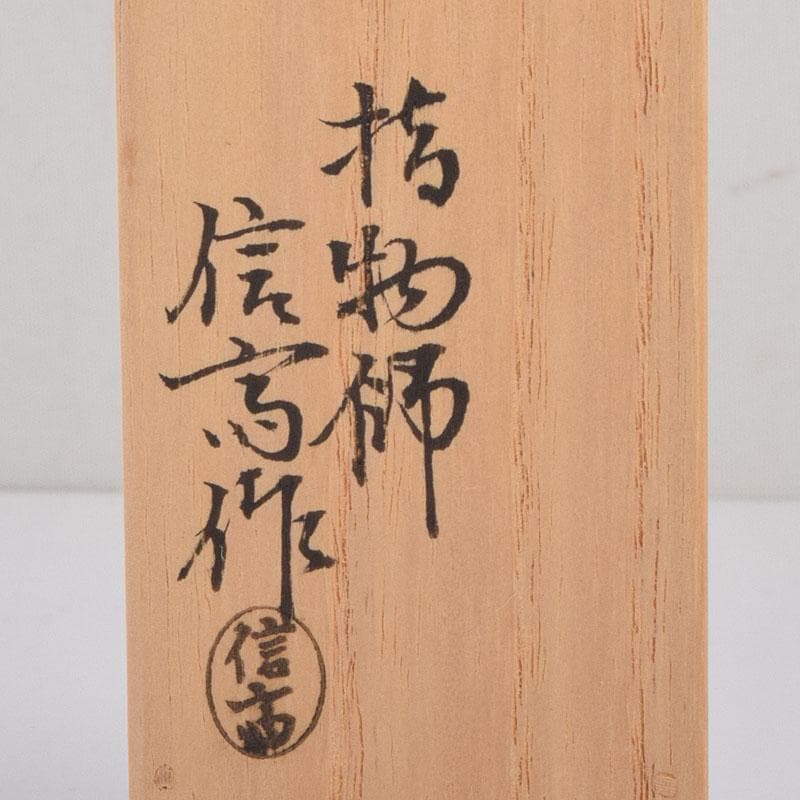 指物師
信高作
信高